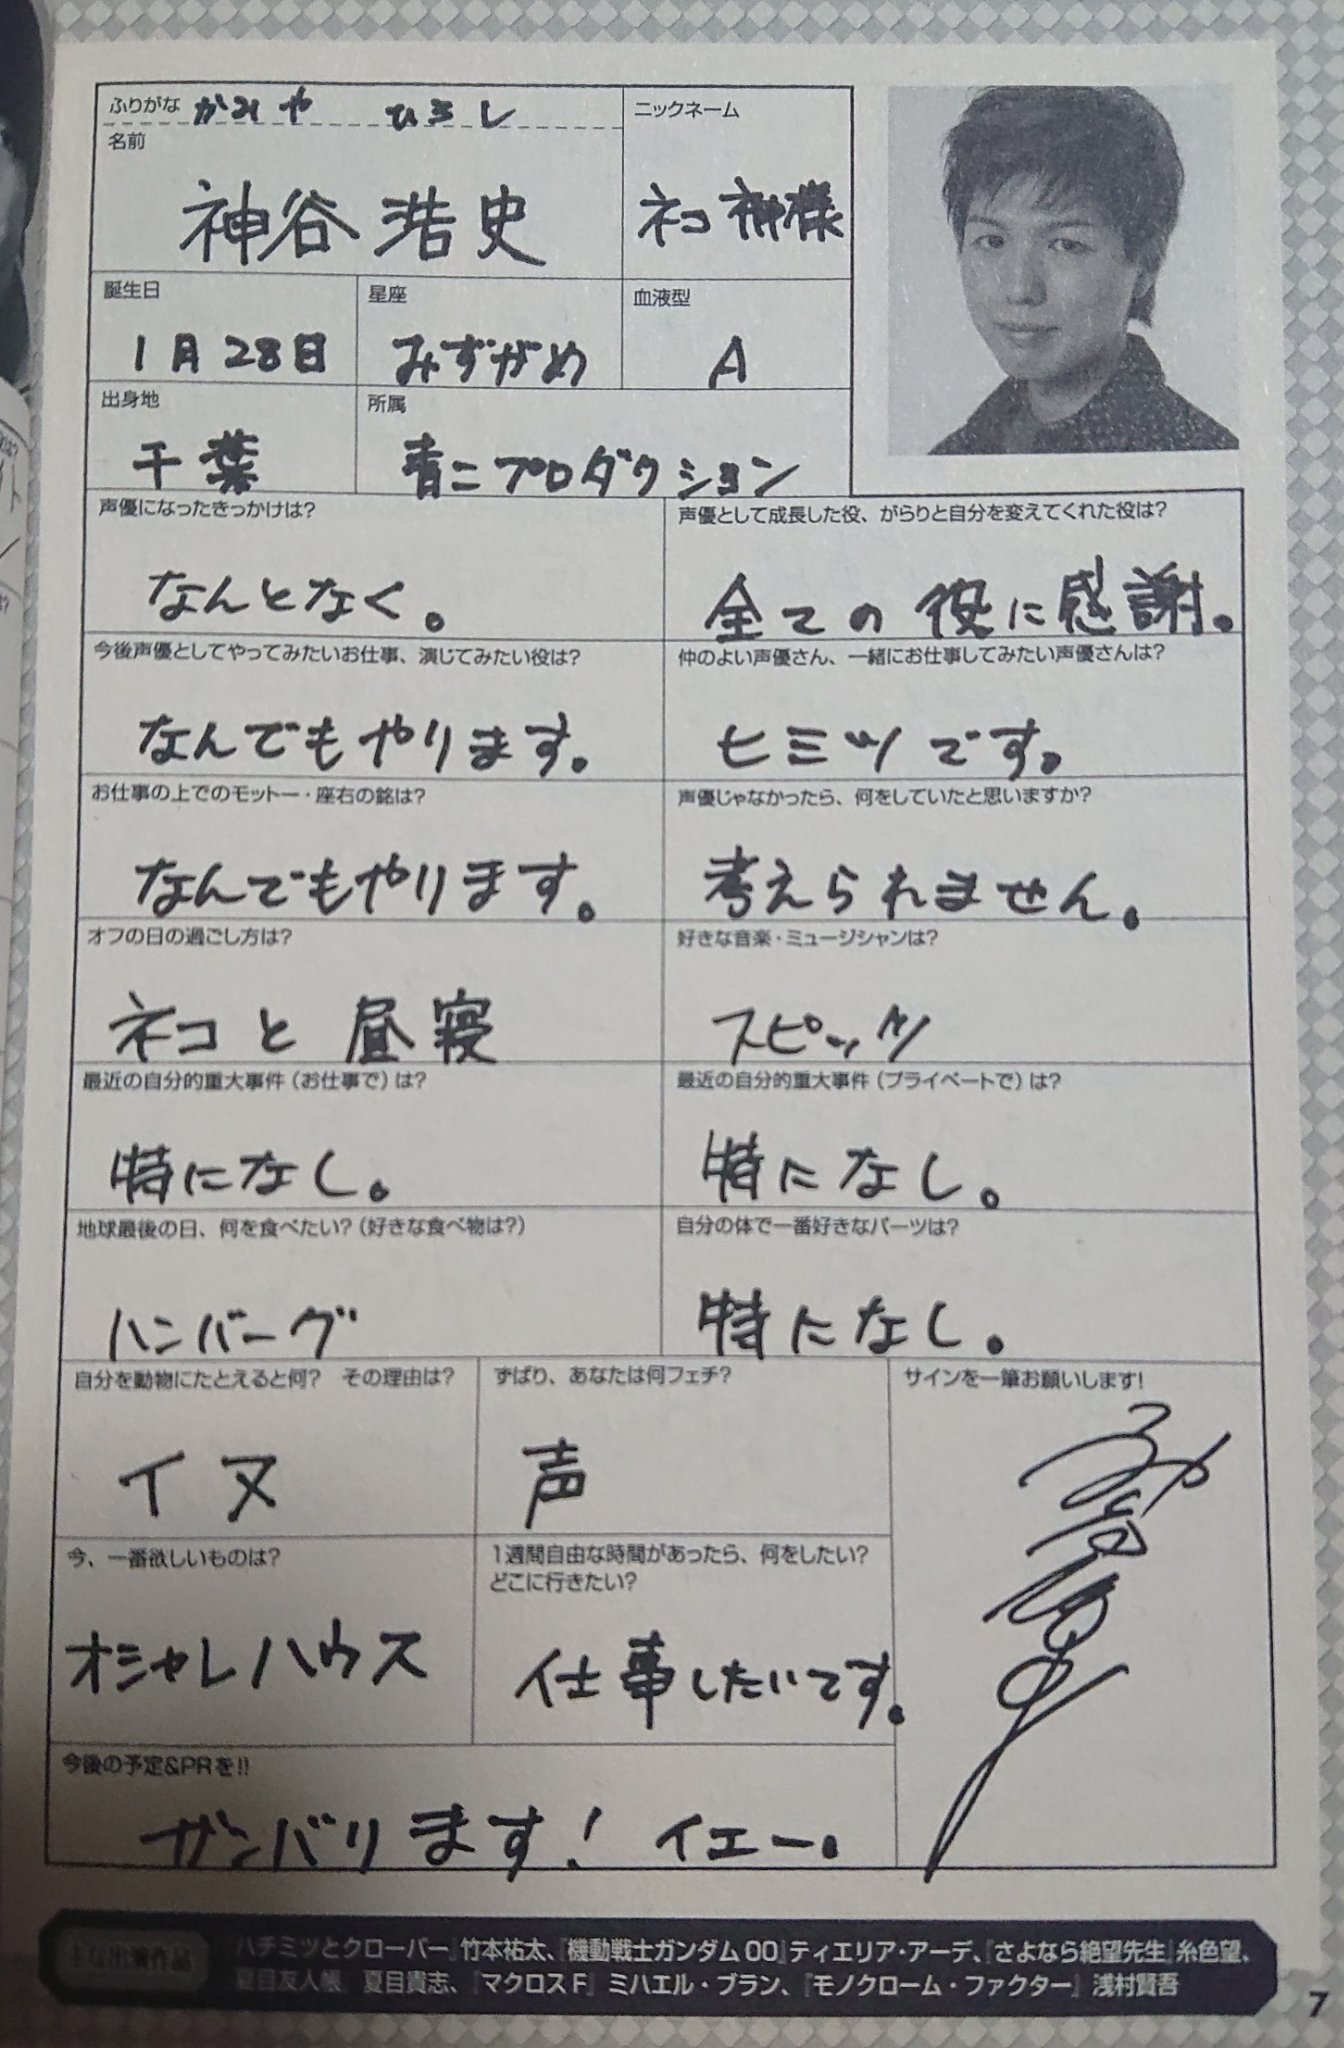 ふりがな かみや ひろし
名前
神谷 浩史
ニックネーム
ネコ神様
誕生日
1月28日
星座
みずがめ
血液型
A
出身地
千葉
所属
青二プロダクション
声優になったきっかけは?
なんとなく。
声優として成長した役、がらりと自分を変えてくれた役は?
全ての役に感謝。
今後声優としてやってみたいお仕事、演じてみたい役は?
なんでもやります。
仲のよい声優さん、一緒にお仕事してみたい声優さんは?
ヒミツです。
お仕事の上でのモットー・座右の銘は?
なんでもやります。
声優じゃなかったら、何をしていたと思いますか?
考えられません。
オフの日の過ごし方は?
ネコと昼寝
好きな音楽・ミュージシャンは?
スピッツ
最近の自分的重大事件(お仕事で)は?
特になし。
最近の自分的重大事件(プライベートで)は?
特になし。
地球最後の日、何を食べたい?(好きな食べ物は?)
ハンバーグ
自分の体で一番好きなパーツは?
特になし。
自分を動物にたとえると何? その理由は?
イヌ
ずばり、あなたは何フェチ?
声
サインを一筆お願いします!
今、一番欲しいものは?
オシャレハウス
1週間自由な時間があったら、何をしたい?
どこに行きたい?
仕事したいです。
今後の予定&PRを!!
ガンバります! イエー。
主な出演作品
ハチミツとクローバー』竹本祐太、『機動戦士ガンダム00』ティエリア・アーデ、『さよなら絶望先生』糸色望、
夏目友人帳 夏目貴志、『マクロスF』ミハエル・ブラン、『モノクローム・ファクター』浅村賢吾
7